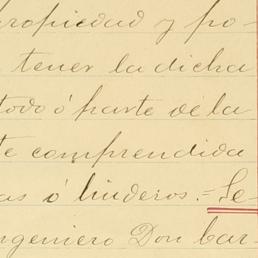 propiedad y po-
tener la dicha
todo ó parte de la
te comprendida
as ó linderos.=Se-
ngeniero Don Car-